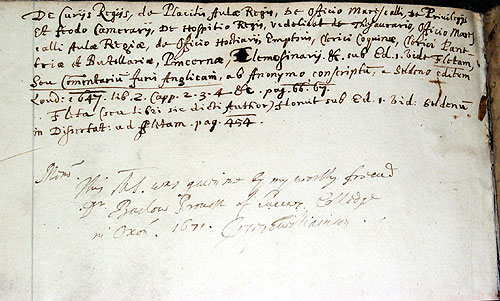 De Curijs Regijs, de Placitis Aulæ Regis, De Officio Mareſcalli, De Privilegijs
et feodo Camerarij, De Hospitio Regis, videlicet de Thesaurario, Officio Mareſ
calli Aulæ Regiæ, de Officio Hostiarij, Emptoris, Clerici Coquinæ, Clerici Panet
triæ et Butellariæ, Pincernæ, Elemosinarij. &c. sub Ed. 1. vide Fletam,
Seu Comentariū Juris Anglicani, ab Anonymo conscriptū, a Seldeno editum
Lond: 1647. lib. 2. Cap. 2. 3. 4. &c. pag. 66. 67.
Fleta (seu libri sic dicti Author) floruit sub Ed. 1. vid: Seldenū
in Dissertat: ad Fletam. pag. 454.
This MS. was given me by my worthy friend
Mr Barlow Provost of Queenes Colledge
in Oxon 1671. Williamson.